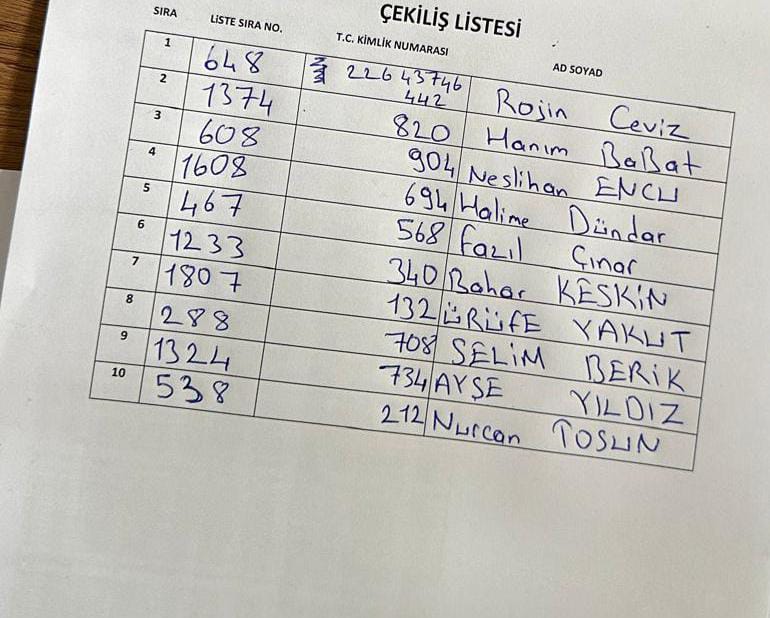 ÇEKİLİŞ LİSTESİ
SIRA LİSTE SIRA NO. T.C. KİMLİK NUMARASI AD SOYAD
1 648 226 43746 442 Rojin Ceviz
2 1374 820 Hanım BaBat
3 608 904 Neslihan ENCU
4 1608 694 Halime Dündar
5 467 568 Fazıl Çınar
6 1233 340 Bahar KESKİN
7 1807 132 ÜRÜFE YAKUT
8 288 708 SELİM BERİK
9 1324 734 AYŞE YILDIZ
10 538 212 Nurcan TOSUN